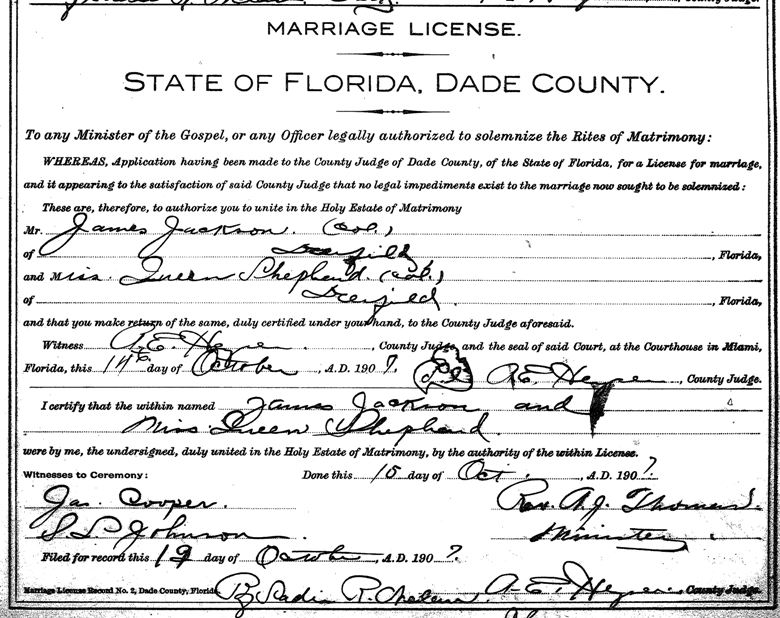 County Judge.
MARRIAGE LICENSE.
STATE OF FLORIDA, DADE COUNTY.
To any Minister of the Gospel, or any Officer legally authorized to solemnize the Rites of Matrimony:
WHEREAS, Application having been made to the County Judge of Dade County, of the State of Florida, for a License for marriage,
and it appearing to the satisfaction of said County Judge that no legal impediments exist to the marriage now sought to be solemnized:
These are, therefore, to authorize you to unite in the Holy Estate of Matrimony
Mr. James Jackson. (Col.)
of Deerfield, Florida,
and Miss. Queen Shepherd. (Col.)
of Deerfield, Florida,
and that you make return of the same, duly certified under your hand, to the County Judge aforesaid.
Witness A. E. Heyser, County Judge, and the seal of said Court, at the Courthouse in Miami,
Florida, this 14th day of October, A.D. 1907. A. E. Heyser, County Judge.
I certify that the within named James Jackson and
Miss Queen Shepherd
were by me, the undersigned, duly united in the Holy Estate of Matrimony, by the authority of the within License.
Witnesses to Ceremony: Done this 15 day of Oct., A.D. 1907.
Jas. Cooper. Rev. A. J. Thomas.
S L Johnson Minister.
Filed for record this 19 day of October, A.D. 1907.
Marriage License Record No. 2, Dade County, Florida. By Sadie R. A. E. Heyser, County Judge.